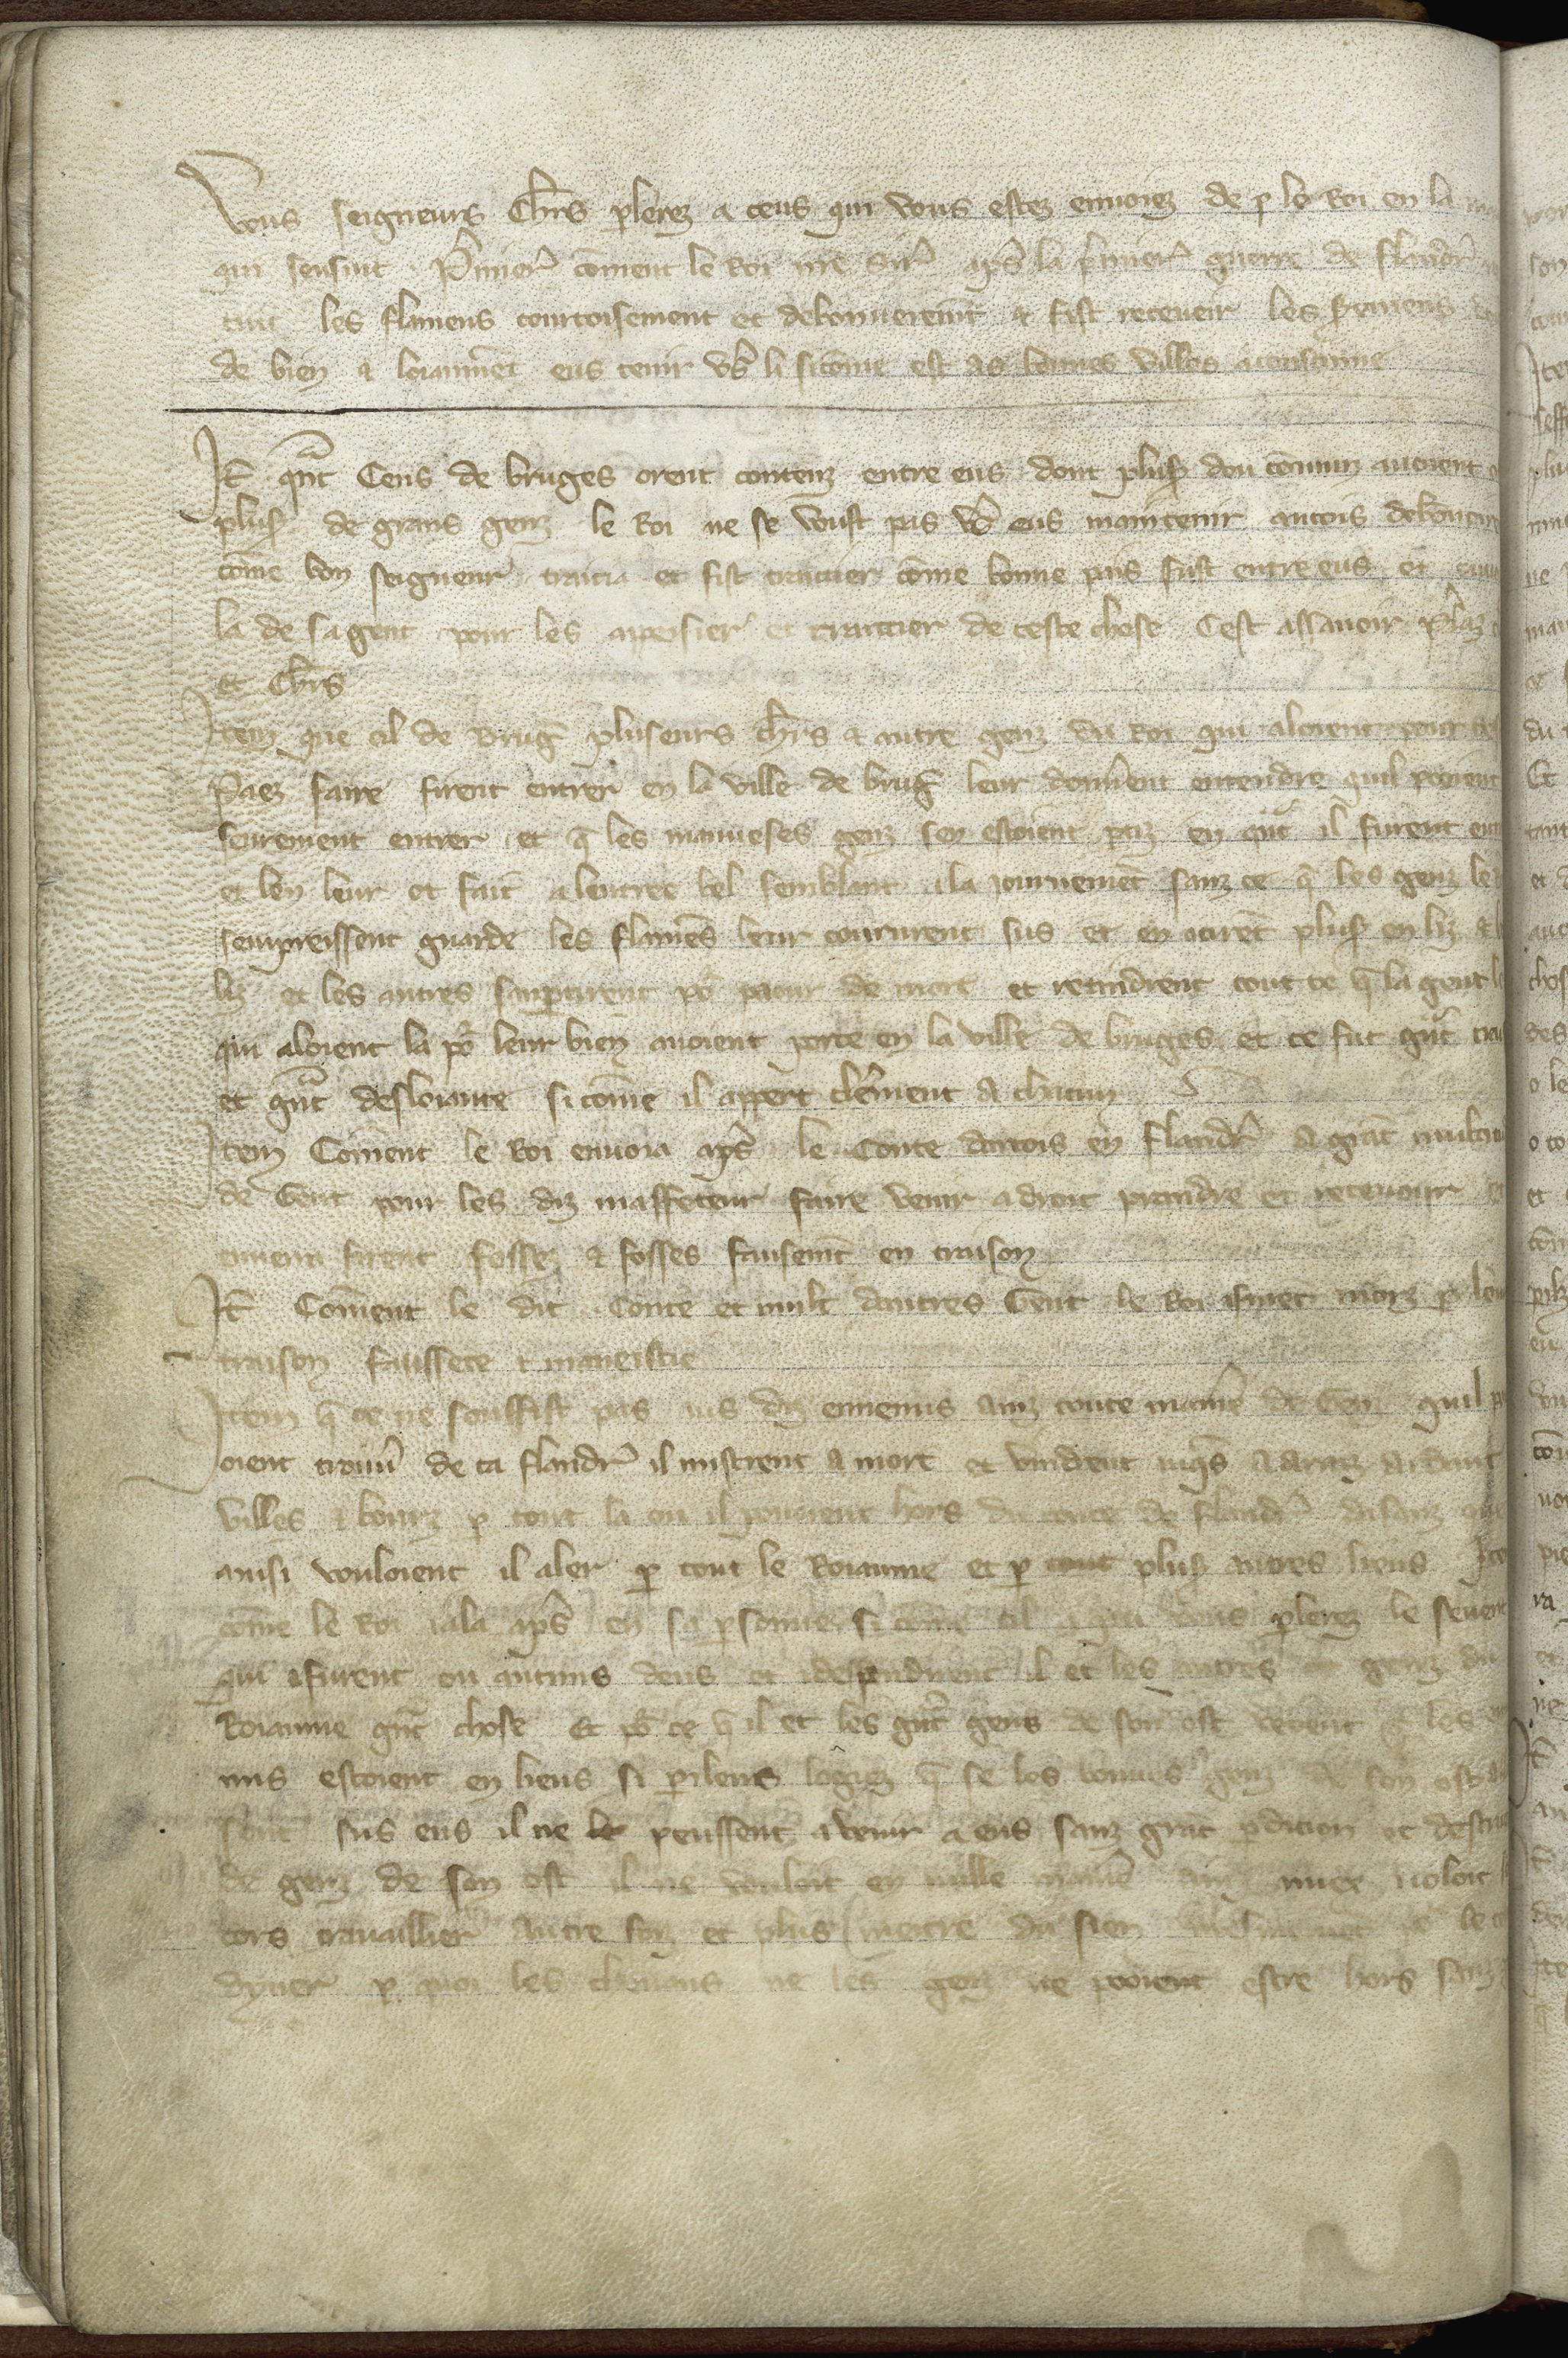 Vous seigneurs Chrs plerez a ceus qui vous estez envoiez de p le Roi en la
qui sensuit . Primer coment le Roi nre Sire aps la primier guerre de Flandr
tint les flamens courtoisement et debonnerement & fist recevoir les
de bien & loiaument eus tenir vs li sicome est as bonnes villes
It qnt Ceus de bruges orent contenz entre eus dont plus dou commun avoient
plus de grans genz le Roi ne se voust pas vs eus maintenir ancois debonnere
come bon seigneur traita et fist traitier come bonne pais fust entre eus et
la de sa gent pour les apesier et traitier de ceste chose Cest assavoir plaz
et Chrs
Item que cil de Brug pluseurs chrs & autre genz du Roi qui aloient pour
Paez faire firent entrer en la ville de brug leur donnent entendre quil pooient
seurement entrer et q les mauveses genz sen estoient ptiz en qnt il furent
et len leur ot fait a lentree bel semblant a la journement sanz ce q les genz le
sempreissent guarde les flamens leur coururent sus et en ocirent plus en liz &
liz et les autres sanptirent por paour de mort et retindrent tout ce q la gent
qui aloient la por leur bien avoient porte en la ville de bruges et ce fut gnt
et gnt desloiaute si come il appert clerment a chacun
Item Coment le Roi envoia aps le Conte dartois en Flandr a grant
de Gent pour les diz maffeteur faire venir a droit prendre et recevoir
firent fossez & fosses fausement en traison
It Coment le dit Conte et mult dautres Gent le Roi morz p leur
traison faussete & mauveistie
Item q ce ne souffist pas aus diz ennemis ainz toute manie de Genz quil
oient trouver de ca flandr il mistrent a mort et vindrent jusqs a arraz ardant
villes & bourz p tout la ou il pouoient hors du conte de flandr disanz
ainsi vouloient il aler p tout le Roiaume et p tout plus autres lieus
come le Roi i ala aps en sa psonne si come cil a qui vous plerez le sevent
qui i furent ou aucuns deus et i despendirent il et les autres genz du
Roiaume gnt chose Et por ce q il et les gnt gens de son ost virent q les
mis estoient en lieus si perileus logiez q se les bonnes genz de son ost
sent sus eus il ne le peussent a venir a eus sanz grnt pdicion et
de genz de son ost il ne vouloit en nulle manie ainz
tors travaillier autre foiz et plus metre du sien
dyver p quoi les chevaus ne les genz ne pooient estre hors sanz